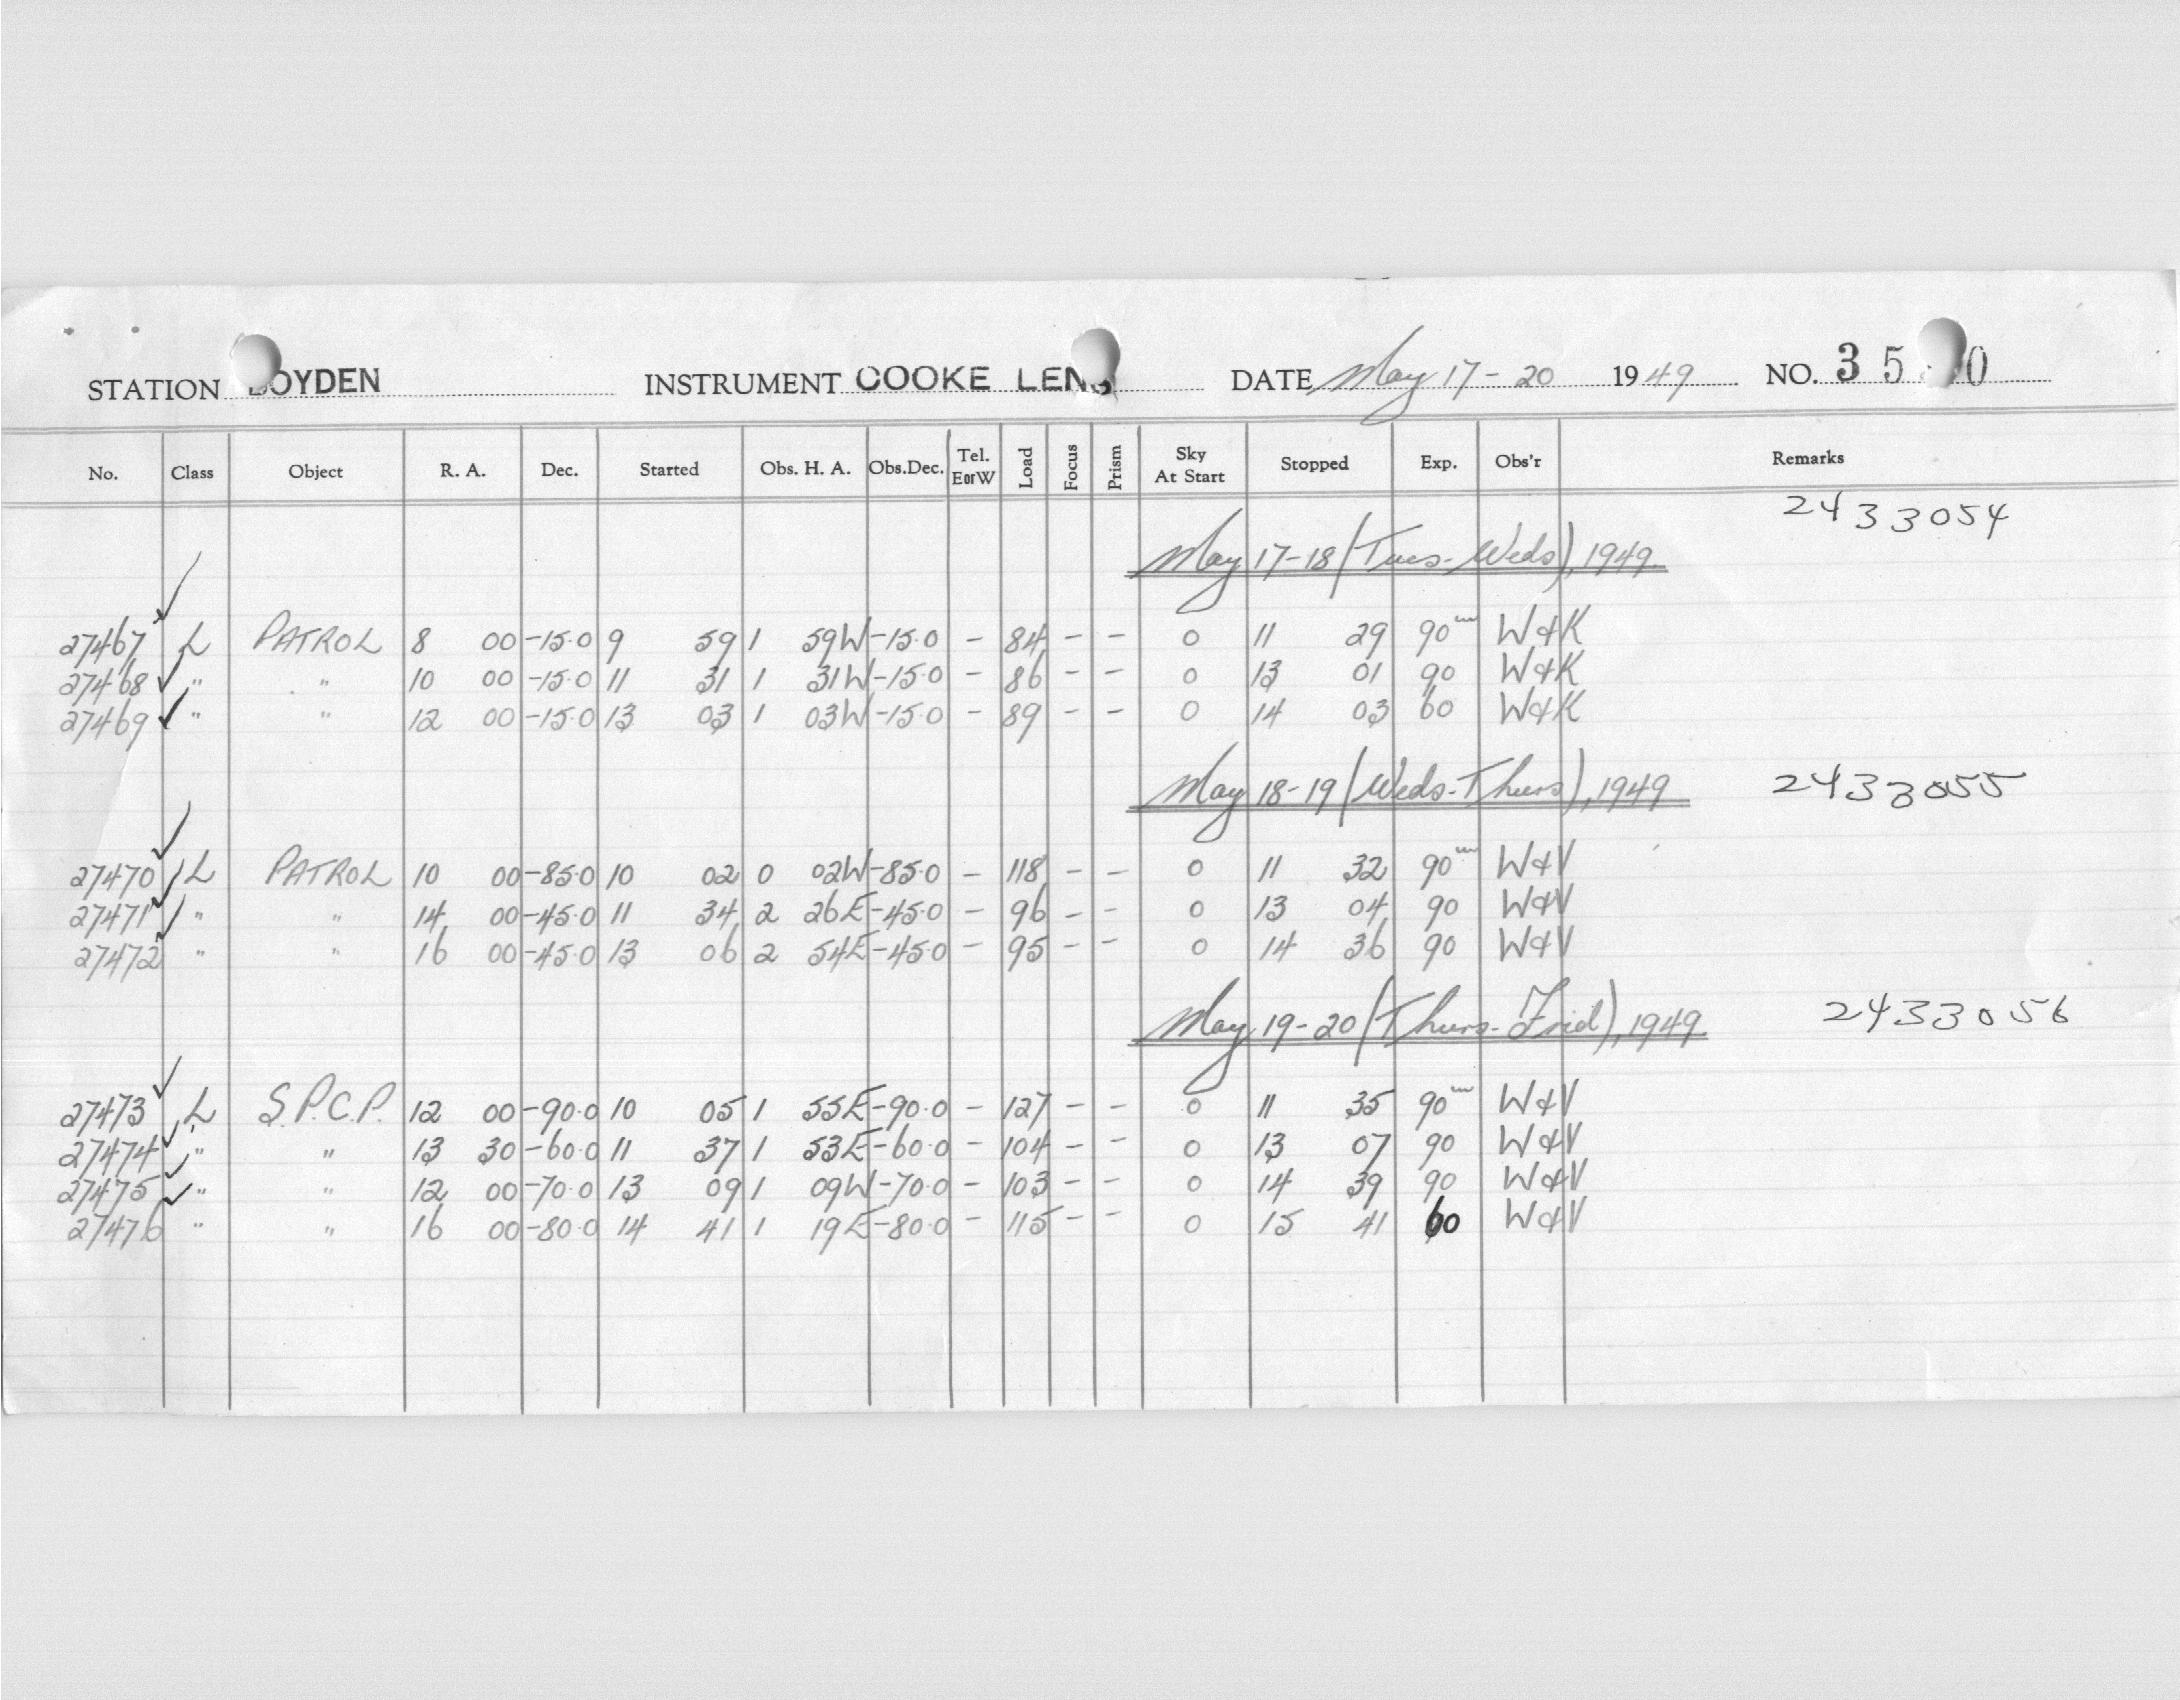 STATION BOYDEN INSTRUMENT COOKE LENS DATE May 17-20 1949 NO. 35 0
No. Class Object R. A. Dec. Started Obs. H. A. Obs.Dec. Tel. EorW Load Focus Prism Sky At Start Stopped Exp. Obs'r Remarks
2433054
May 17-18 (Tues-Weds), 1949.
27467 L PATROL 8 00 -15.0 9 59 1 59W -15.0 - 84 - - 0 11 29 90m W&K
27468 " " 10 00 -15.0 11 31 1 31W -15.0 - 86 - - 0 13 01 90 W&K
27469 " " 12 00 -15.0 13 03 1 03W -15.0 - 89 - - 0 14 03 60 W&K
May 18-19 (Weds-Thurs), 1949 2433055
27470 L PATROL 10 00 -85.0 10 02 0 02W -85.0 - 118 - - 0 11 32 90m W&V
27471 " " 14 00 -45.0 11 34 2 26E -45.0 - 96 - - 0 13 04 90 W&V
27472 " " 16 00 -45.0 13 06 2 54E -45.0 - 95 - - 0 14 36 90 W&V
May 19-20 (Thurs-Frid), 1949. 2433056
27473 L S.P.C.P. 12 00 -90.0 10 05 1 55E -90.0 - 127 - - 0 11 35 90m W&V
27474 " " 13 30 -60.0 11 37 1 53E -60.0 - 104 - - 0 13 07 90 W&V
27475 " " 12 00 -70.0 13 09 1 09W -70.0 - 103 - - 0 14 39 90 W&V
27476 " " 16 00 -80.0 14 41 1 19E -80.0 - 115 - - 0 15 41 60 W&V